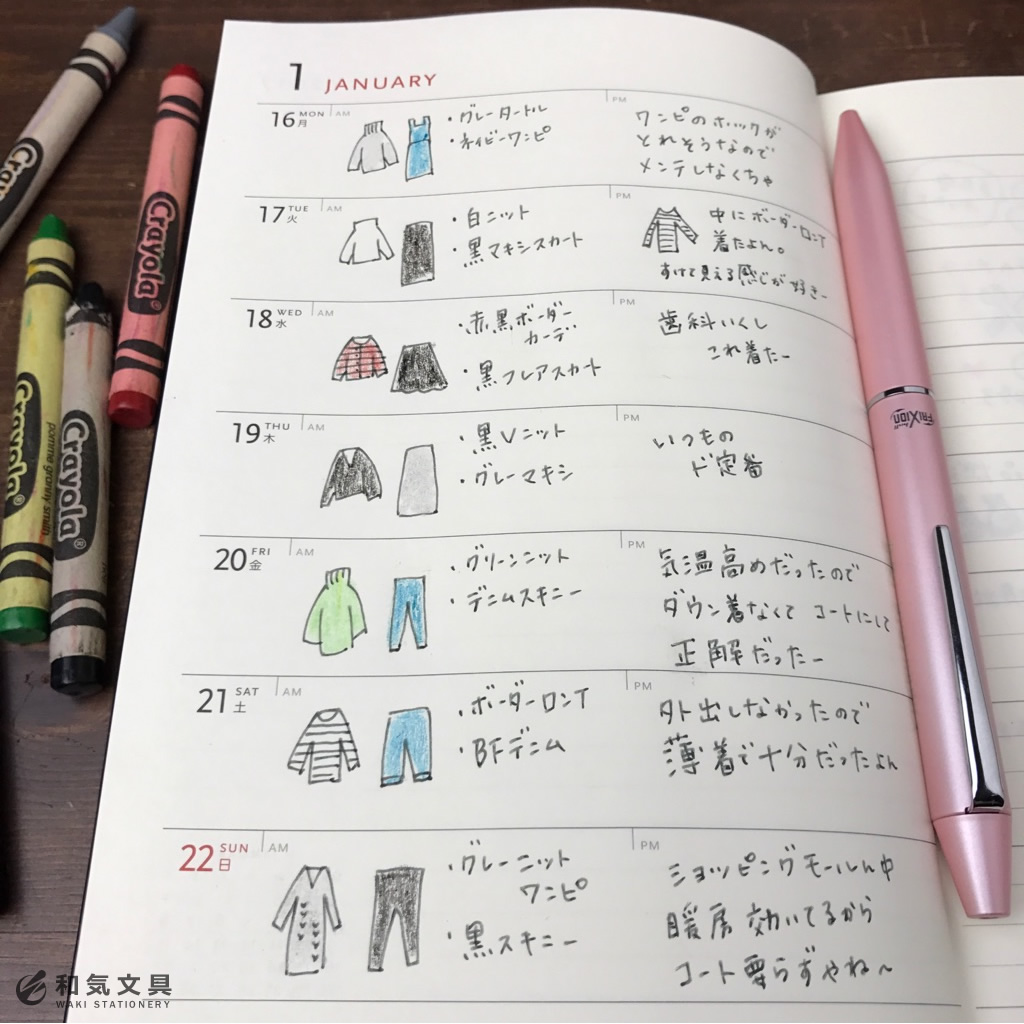 1 JANUARY
16 MON 月 AM
・グレータートル
・ネイビーワンピ
PM
ワンピのホックが
とれそうなので
メンテしなくちゃ
17 TUE 火 AM
・白ニット
・黒マキシスカート
PM
中にボーダーロンT
着たよん。
すけて見える感じが好きー
18 WED 水 AM
・赤黒ボーダー
カーデ
・黒フレアスカート
PM
歯科いくし
これ着たー
19 THU 木 AM
・黒Vニット
・グレーマキシ
PM
いつもの
ド定番
20 FRI 金 AM
・グリーンニット
・デニムスキニー
PM
気温高めだったので
ダウン着なくて コートにして
正解だったー
21 SAT 土 AM
・ボーダーロンT
・BFデニム
PM
外出しなかったので
薄着で十分だったよん
22 SUN 日 AM
・グレーニット
ワンピ
・黒スキニー
PM
ショッピングモールん中
暖房効いてるから
コート要らずやね〜
Crayola
Crayola
Crayola
Crayola
pomme granny smith
FRIXION ball
和気文具
WAKI STATIONERY